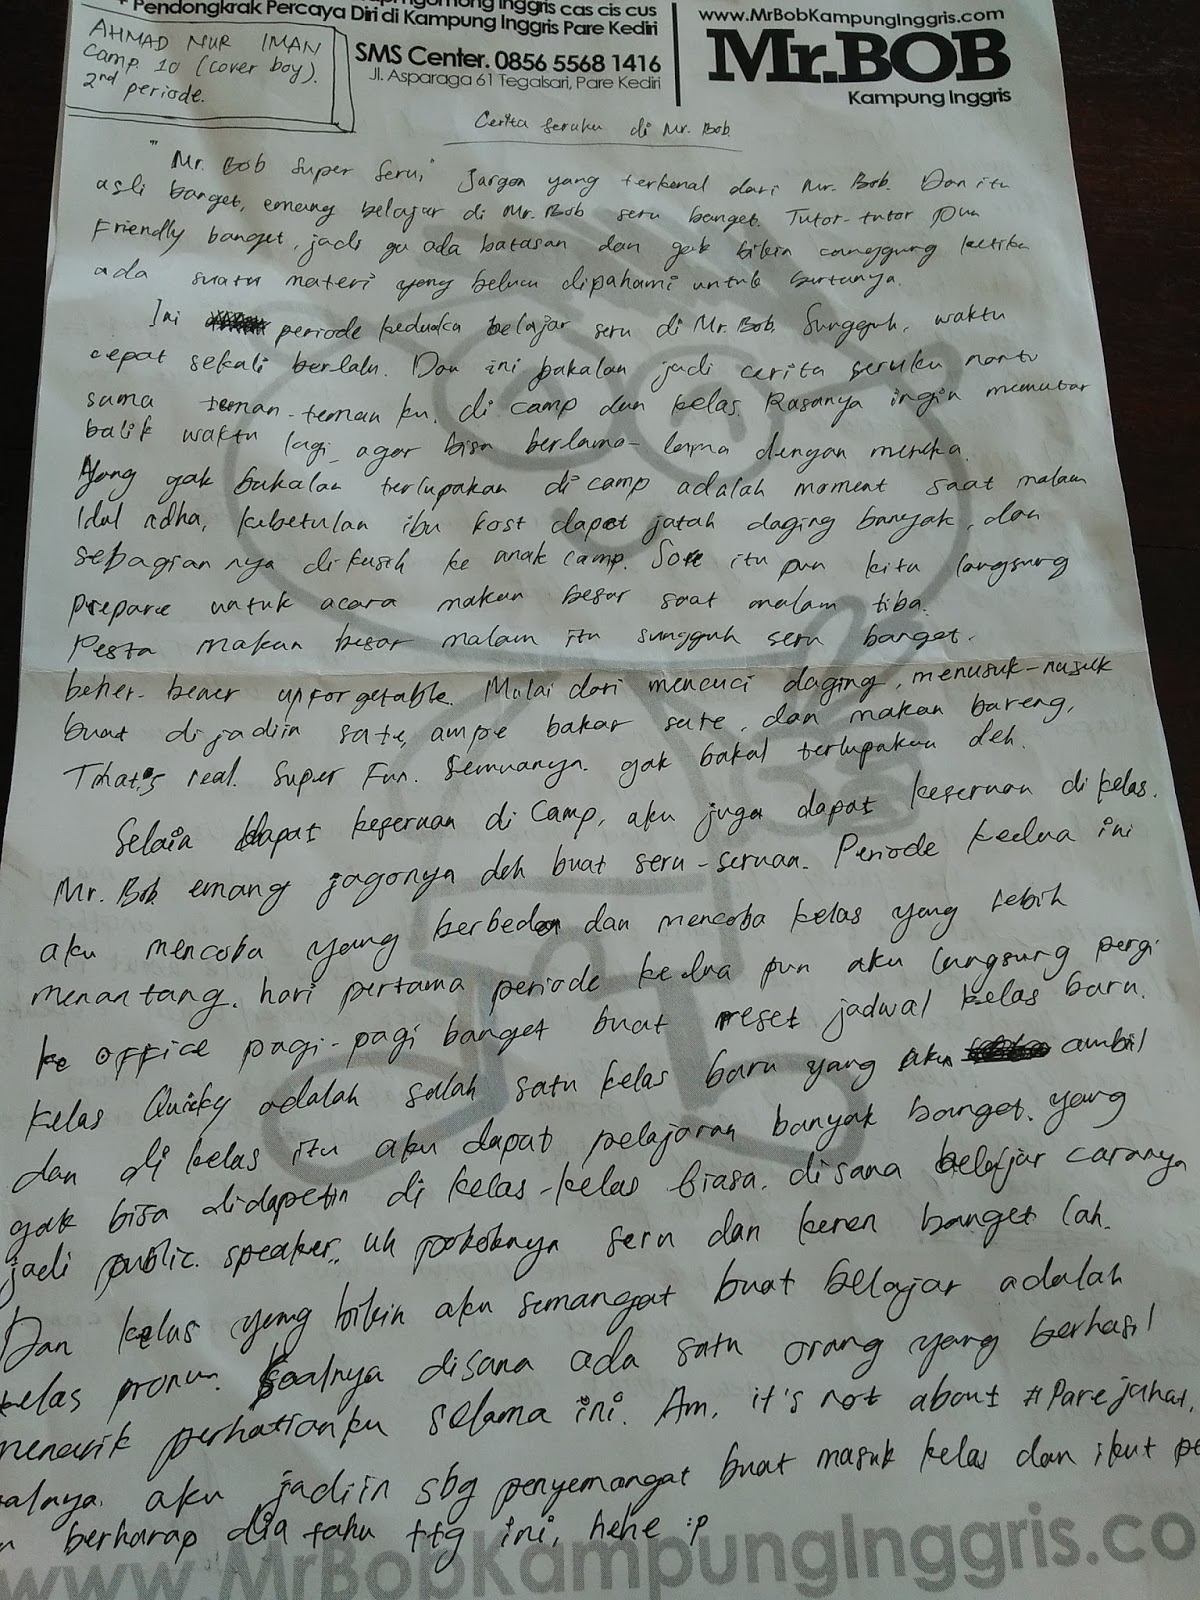 Inggris cas cis cus
+ Pendongkrak Percaya Diri di Kampung Inggris Pare Kediri
SMS Center. 0856 5568 1416
Jl. Asparaga 61 Tegalsari, Pare Kediri
www.MrBobKampungInggris.com
Mr.BOB
Kampung Inggris
AHMAD NUR IMAN
Camp. 10 (cover boy).
2nd periode.
Cerita seruku di Mr. Bob
"Mr. Bob super seru," Jargon yang terkenal dari Mr. Bob. Dan itu
asli banget, emang belajar di Mr. Bob seru banget. Tutor-tutor pun
Friendly banget, jadi ga ada batasan dan gak bikin canggung ketika
ada suatu materi yang belum dipahami untuk bertanya.
Ini periode keduaku belajar seru di Mr. Bob. Sungguh, waktu
cepat sekali berlalu. Dan ini bakalan jadi cerita seruku nanti
sama teman-teman ku. di camp dan kelas. Rasanya ingin memutar
balik waktu lagi agar bisa berlama-lama dengan mereka.
Yang gak bakalan terlupakan di camp adalah moment saat malam
Idul adha, kebetulan ibu kost dapet jatah daging banyak, dan
sebagian nya dikasih ke anak camp. Sore itu pun kita langsung
prepare untuk acara makan besar saat malam tiba.
Pesta makan besar malam itu sungguh seru banget.
bener-bener unforgetable. Mulai dari mencuci daging, menusuk-nusuk
buat dijadiin sate, ampe bakar sate, dan makan bareng,
That's real. Super Fun. Semuanya. gak bakal terlupakan deh.
Selain dapat keseruan di Camp, aku juga dapat keseruan di kelas.
Mr. Bob emang jagonya deh buat seru-seruan. Periode kedua ini
aku mencoba yang berbeda dan mencoba kelas yang lebih
menantang. hari pertama periode kedua pun aku langsung pergi
ke office pagi-pagi banget buat reset jadwal kelas baru.
Kelas Quicky adalah salah satu kelas baru yang aku ambil
dan di kelas itu aku dapat pelajaran banyak banget. yang
gak bisa didapetin di kelas-kelas biasa. disana belajar caranya
jadi public speaker.. uh pokoknya seru dan keren banget lah.
Dan kelas yang bikin aku semangat buat belajar adalah
kelas pronun. Soalnya disana ada satu orang yang berhasil
menarik perhatianku selama ini. Am, it's not about #Parejahat,
alnya. aku jadiin sbg penyemangat buat masuk kelas dan ikut pe
berharap dia tahu ttg ini, hehe :p
www.MrBobKampungInggris.co